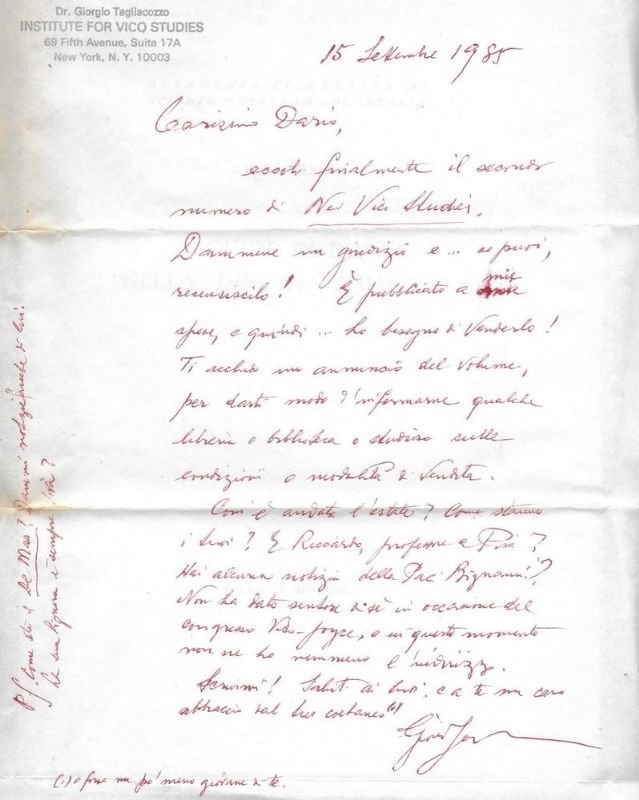 Dr. Giorgio Tagliacozzo
INSTITUTE FOR VICO STUDIES
69 Fifth Avenue, Suite 17A
New York, N. Y. 10003
15 Settembre 1985
Carissimo Dario,
eccoti finalmente il secondo
numero di New Vico Studies.
Dammene un giudizio e ... se puoi,
recensiscilo! È pubblicato a mie
spese, e quindi ... ho bisogno di venderlo!
Ti accludo un annuncio del volume,
per darti modo d'informarne qualche
libreria o biblioteca o studioso sulle
condizioni o modalità di vendita.
Com'è andata l'estate? Come stanno
i tuoi? E Riccardo, professore a Pisa?
Hai alcuna notizia della Paci Bignami?
Non ha dato sentore di sé in occasione del
congresso Vico-Joyce, e in questo momento
non ne ho nemmeno l'indirizzo.
Scrivimi! Saluti ai tuoi, e a te un caro
abbraccio dal tuo coetaneo (1)
(1) o forse un po' meno giovane di te.
PS Come sta il De Mas? Dammi notizie anche di lui.
La sua Signora è sempre viva?